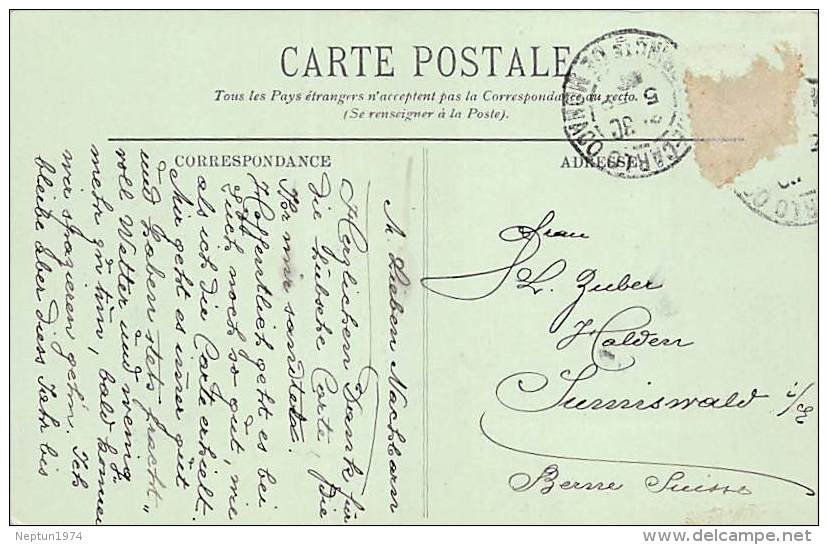 CARTE POSTALE
Tous les Pays étrangers n'acceptent pas la Correspondance au recto.
(Se renseigner à la Poste).
CORRESPONDANCE
ADRESSE
M. Lieben Nachbarn
Herzlichen Dank für
die hübsche Carte, die
Ihr mir sandtet.
Hoffentlich geht es bei
Euch noch so gut, wie
als ich die Carte erhielt.
Mir geht es immer gut
und haben stets pracht-
voll Wetter und wenig
mehr z'tun, bald können
wir spazieren gehn. Ich
bleibe über diess Jahr bis
Frau
L. Zuber
Halden
Sumiswald i/E
Berne Suisse
MONTE-CARLO
PRINCIPTE DE MONACO
Neptun1974
www.delcampe.net